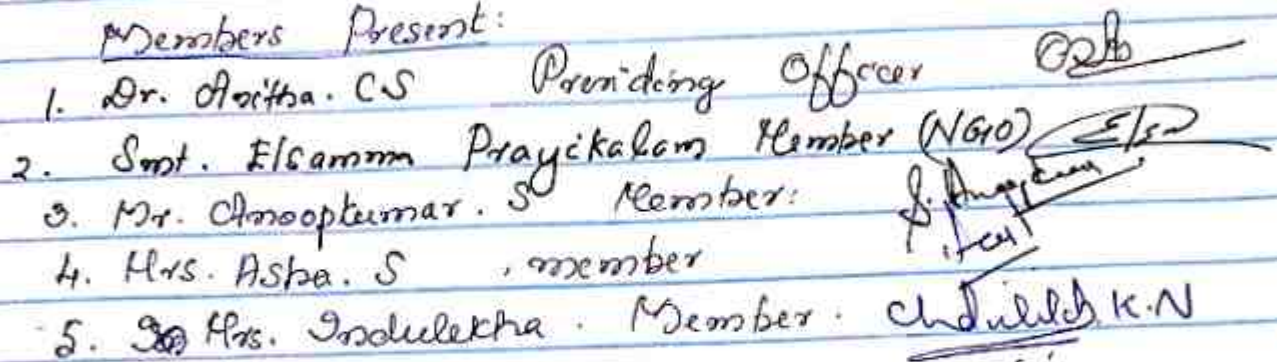 Members Present:
1. Dr. Anitha. CS Presiding Officer
2. Smt. Elsamma Prayikalam Member (NGO)
3. Mr. Anoopkumar. S Member:
4. Mrs. Asha. S , member
5. Mrs. Indulekha. Member. Indulekh. K.N